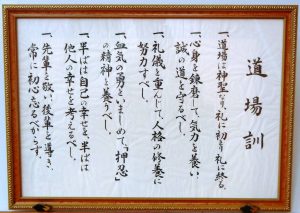 道場訓
一、道場は神聖なり、礼に初まり礼に終る。
一、心身を錬磨して、気力を養い、
誠の道を守るべし。
一、礼儀を重んじて、人格の修養に
努力すべし。
一、血気の勇をいましめて、「押忍」
の精神を養うべし。
一、半ばは自己の幸せを、半ばは
他人の幸せを考えるべし。
一、先輩を敬い、後輩を導き、
常に初心忘るべからず。